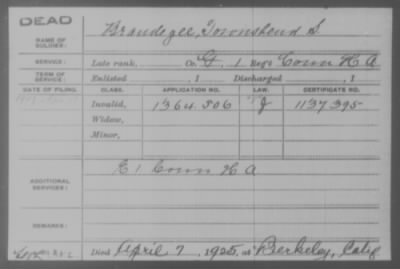 DEAD
NAME OF SOLDIER: Brandegee, Townshend S.
SERVICE: Late rank, Co. G, 1 Reg't Conn H A
TERM OF SERVICE: Enlisted , 1 Discharged , 1
DATE OF FILING. CLASS. APPLICATION NO. LAW. CERTIFICATE NO.
Invalid, 1364.506 J 1137395
Widow,
Minor,
ADDITIONAL SERVICES: E 1 Conn H A
REMARKS:
Died April 7, 1925, at Berkeley, Calif